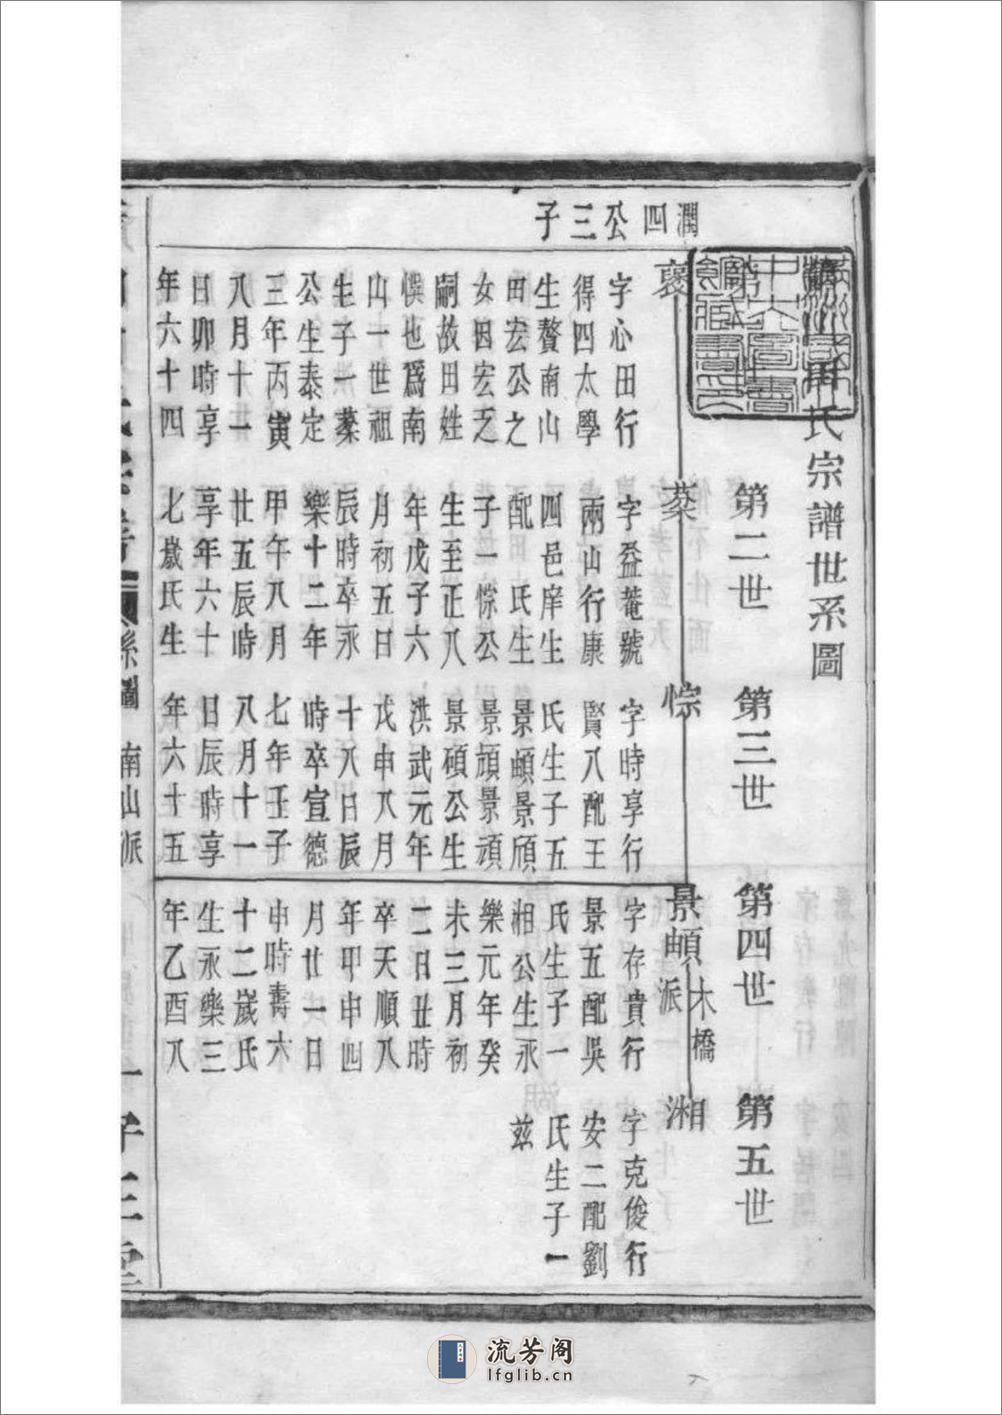 周氏宗譜世系圖
第二世
第三世
第四世
第五世
潤四公三子
褒
字心田行
得四太學
生贅南山
田宏公之
女因宏乏
嗣故田姓
僕也爲南
山一世祖
生子一蓁
公生泰定
三年丙寅
八月十一
日卯時享
年六十四
蓁
字益菴號
兩山行康
四邑庠生
配田氏生
子一悰公
生至正八
年戊子六
月初五日
辰時卒永
樂十二年
甲午八月
廿五辰時
享年六十
七歲氏生
悰
字時享行
賢八配王
氏生子五
景頔景頎
景頏景頑
景碩公生
洪武元年
戊申八月
十八日辰
時卒宣德
七年壬子
八月十一
日辰時享
年六十五
景頔
木橋派
字存貴行
景五配吳
氏生子一
湘公生永
樂元年癸
未三月初
二日丑時
卒天順八
年甲申四
月廿一日
申時壽六
十二歲氏
生永樂三
年乙酉八
湘
字克俊行
安二配劉
氏生子一
茲
系圖
南山派
流芳阁
lfglib.cn